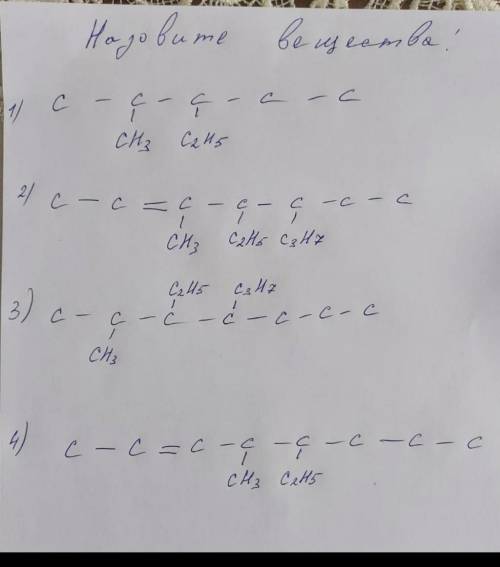 Назовите вещества!
1) C - C - C - C - C
CH3 C2H5
2) C - C = C - C - C - C - C
CH3 C2H5 C3H7
C2H5 C3H7
3) C - C - C - C - C - C - C
CH3
4) C - C = C - C - C - C - C - C
CH3 C2H5